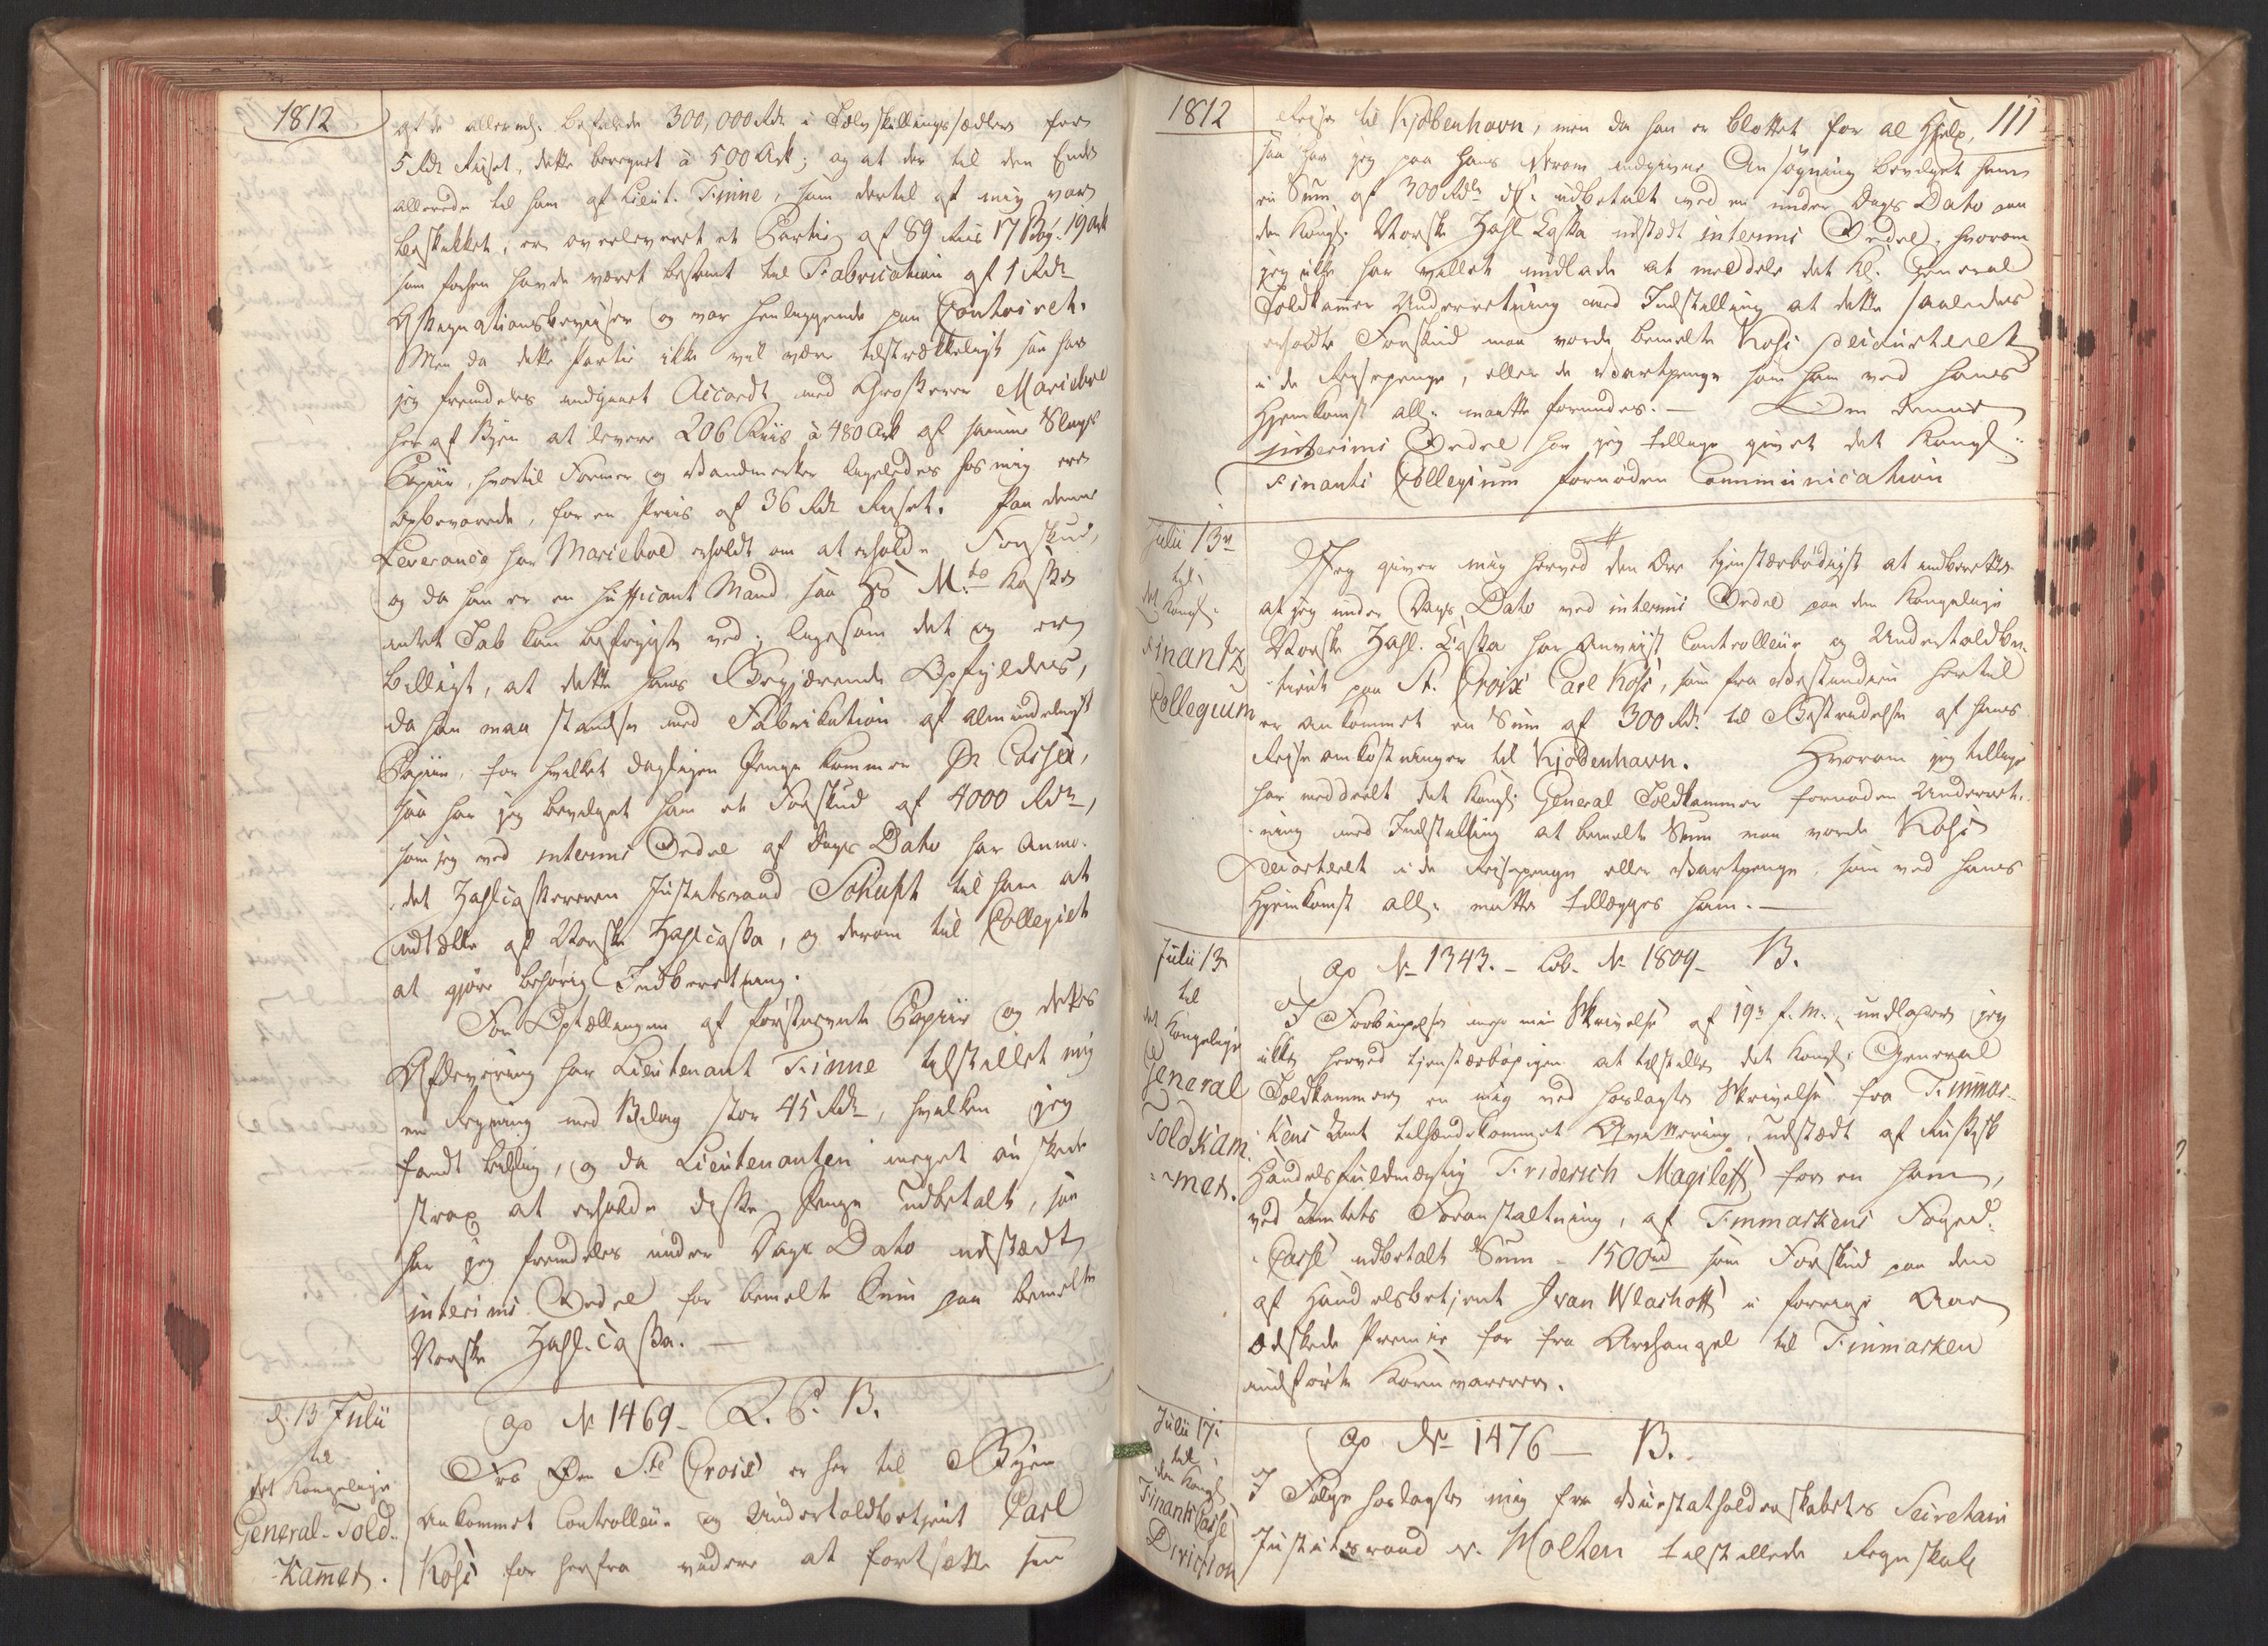 1812
af de allernd. befalede 300,000 Rdr i Tolvskillingssedler for
5 Rdr Riiset, dette beregnet à 500 Ark; og at der til den Ende
allerede til ham af Lieut. Tinne, som dertil af mig var
beskikket, er overleveret et Partie af 89 Riis 17 Bøg. 19 Ark
som forhen havde været bestemt til Fabrication af 1 Rdr
Assignationsbeviser og var henliggende paa Contoiret.
Men da dette Partie ikke vil være tilstrækkeligt saa har
jeg fremdeles indgaaet Accordt med Grosserer Mariebo
her af Byen at levere 206 Riis à 480 Ark af samme Slags
Papiir, hvortil Former og Vandmerker ligeledes hos mig ere
opbevarede, for en Priis af 36 Rdr Riiset. Paa denne
Leverance har Marieboe erholdt om at erholde Forskud,
og da han er en sufficant Mand, saa Hs Mts Kasse
intet Tab kan befrygte ved; ligesom det og er
billigt, at dette hans Begjærende opfyldes,
da han maa standse med Fabrikation af almindeligt
Papiir, for hvilket dagligen Penge kommer pr Casse,
saa har jeg bevilget ham et Forskud af 4000 Rdr,
som jeg ved interims Ordre af Dags Dato har anmo-
det Zahlcasserer Justitsraad Schuht til ham at
udtælle af Norske Zahlcassa, og derom til Collegiet
at gjøre behørig Indberetning.
For Optællingen af førstnævnte Papiir og dets
Aflevering har Lieutenant Tinne tilstillet mig
en Regning med Bilag stor 45 Rdr, hvilken jeg
fandt billig, og da Lieutenanten meget ønskede
strax at erholde disse Penge udbetalt, saa
har jeg fremdeles under Dags Dato udstædt
interims Ordre for bemelte Sum paa bemelte
Norske Zahl-Cassa.
d. 13 Julii
til
det Kongelige
General-Told-
Kamer.
ap No 1469 - R. P. B.
Fra Øen Ste Croix er her til Byen
ankommet Controlleur og Undertoldbetjent Carl
Kohs for herfra videre at fortsætte sin
1812
111
Reise til Kjøbenhavn, men da han er blottet for al Hjelp,
saa har jeg paa hans derom indgivne Ansøgning bevilget ham
en Sum af 300 Rdr DC. udbetalt ved en under Dags Dato paa
den Kongl. Norske Zahl Cassa udstædt interims Ordre, hvorom
jeg ikke har villet undlade at meddele det Kl. General
Toldkamer Underretning med Indstilling at dette saaledes
erholdte Forskud maa vorde bemelte Kohs decourteret
i de Reisepenge, eller de Vartpenge som ham ved hans
Hjemkomst all. maatte forundes. - Om denne
interims Ordre har jeg tillige givet det Kongl.
Finants Collegium fornøden Communication
Julii 13n
til
det Kongl.
Finantz
Collegium
Jeg giver mig herved den Ære tjenstærbødigst at indberette
at jeg under Dags Dato ved interims Ordre paa den Kongelige
Norske Zahl. Cassa har anviist Controlleur og Undertoldbe-
tient paa St. Croix Carl Kohs, som fra Vestindien hertil
er ankommet en Sum af 300 Rdr. til Bestridelse af hans
Reiseomkostninger til Kjøbenhavn. Hvorom jeg tillige
har meddeelt det Kongl. General Toldkammer fornøden Underret-
ning med Indstilling at bemelte Sum maa vorde Kohs
decourteret i de Reisepenge eller Vartpenge, som ved hans
Hjemkomst all. maatte tillægges ham. -
Julii 13
til
det Kongelige
General
Toldkam-
mer.
ap No 1343. - Lob. No 1809 - B.
I Forbindelse med min Skrivelse af 19n f. M., undlader jeg
ikke herved tjenstærbødigen at tilstille det Kongl. General
Toldkammer en mig ved hoslagte Skrivelse fra Finmar-
kens Amt tilhændekommet Qvittering, udstædt af Russisk
Handelsfuldmægtig Friderich Magileff for en ham,
ved Amtets Foranstaltning, af Finmarkens Foged-
Casse udbetalt Sum - 1500 rd som Forskud paa den
af Handelsbetjent Ivan Wlachoff i forrige Aar
ædskede Premie for fra Archangel til Finmarken
indførte Kornvarer.
Julii 17.
til
den Kongl.
Finants Casse
Direction
ap No 1476 - B.
I Følge hoslagte mig fra Vicestatholderskabets Secretair
Justitsraad v. Molken tilstillede Regnskab